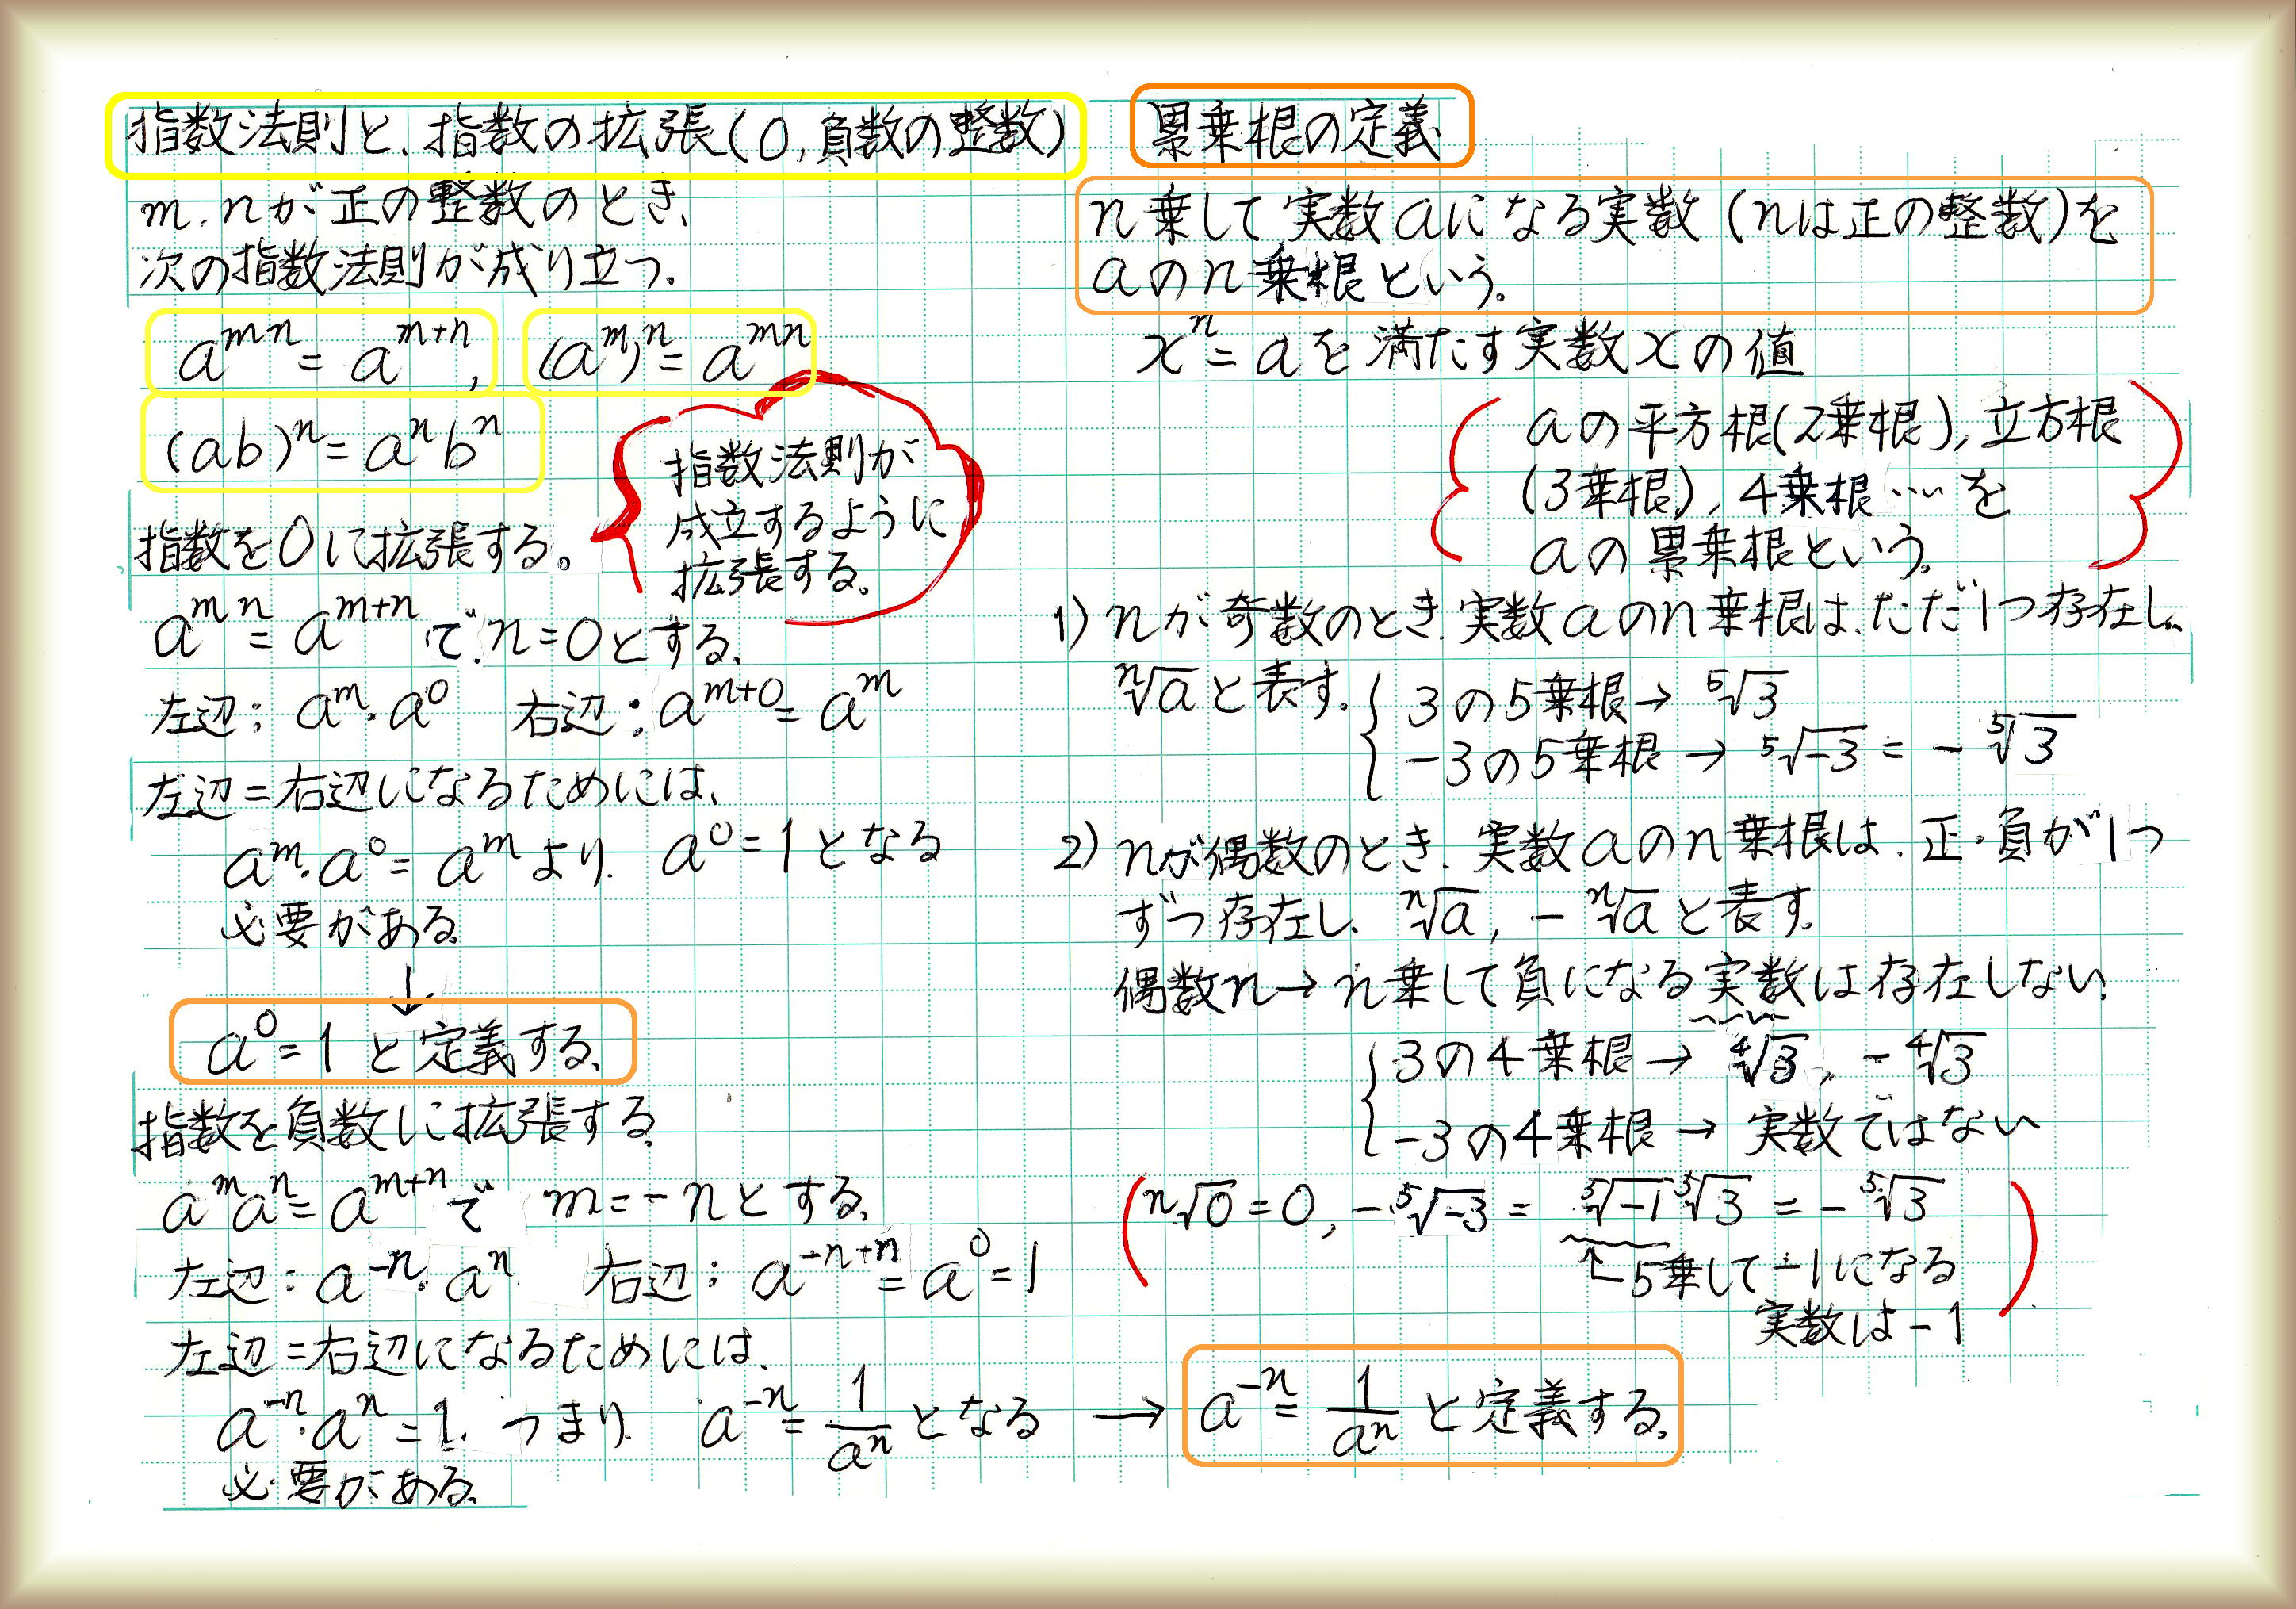 指数法則と、指数の拡張(0,負数の整数)
m,nが正の整数のとき、
次の指数法則が成り立つ。
a^{mn}=a^{m+n}, (a^m)^n=a^{mn}
(ab)^n=a^n b^n
指数法則が
成立するように
拡張する。
指数を0に拡張する。
a^{mn}=a^{m+n}で、n=0とする、
左辺: a^m・a^0 右辺:a^{m+0}=a^m
左辺=右辺になるためには、
a^m・a^0=a^mより、a^0=1となる
必要がある。
↓
a^0=1と定義する。
指数を負数に拡張する。
a^m a^n=a^{m+n}で m=-nとする。
左辺:a^{-n}・a^n 右辺:a^{-n+n}=a^0=1
左辺=右辺になるためには、
a^{-n}・a^n=1、つまり a^{-n}=1/a^n となる → a^{-n}=1/a^n と定義する。
必要がある。
累乗根の定義
n乗して実数aになる実数(nは正の整数)を
aのn乗根という。
x^n=aを満たす実数xの値
aの平方根(2乗根),立方根
(3乗根),4乗根…を
aの累乗根という。
1) nが奇数のとき、実数aのn乗根は、ただ1つ存在し、
ⁿ√aと表す。{3の5乗根→ ⁵√3
-3の5乗根→ ⁵√-3=-⁵√3
2) nが偶数のとき、実数aのn乗根は、正・負が1つ
ずつ存在し、ⁿ√a,-ⁿ√aと表す。
偶数n→n乗して負になる実数は存在しない。
{3の4乗根→ ⁴√3,-⁴√3
-3の4乗根→ 実数ではない
(ⁿ√0=0,-⁵√-3= ⁵√-1 ⁵√3=-⁵√3
↑5乗して-1になる
実数は-1)